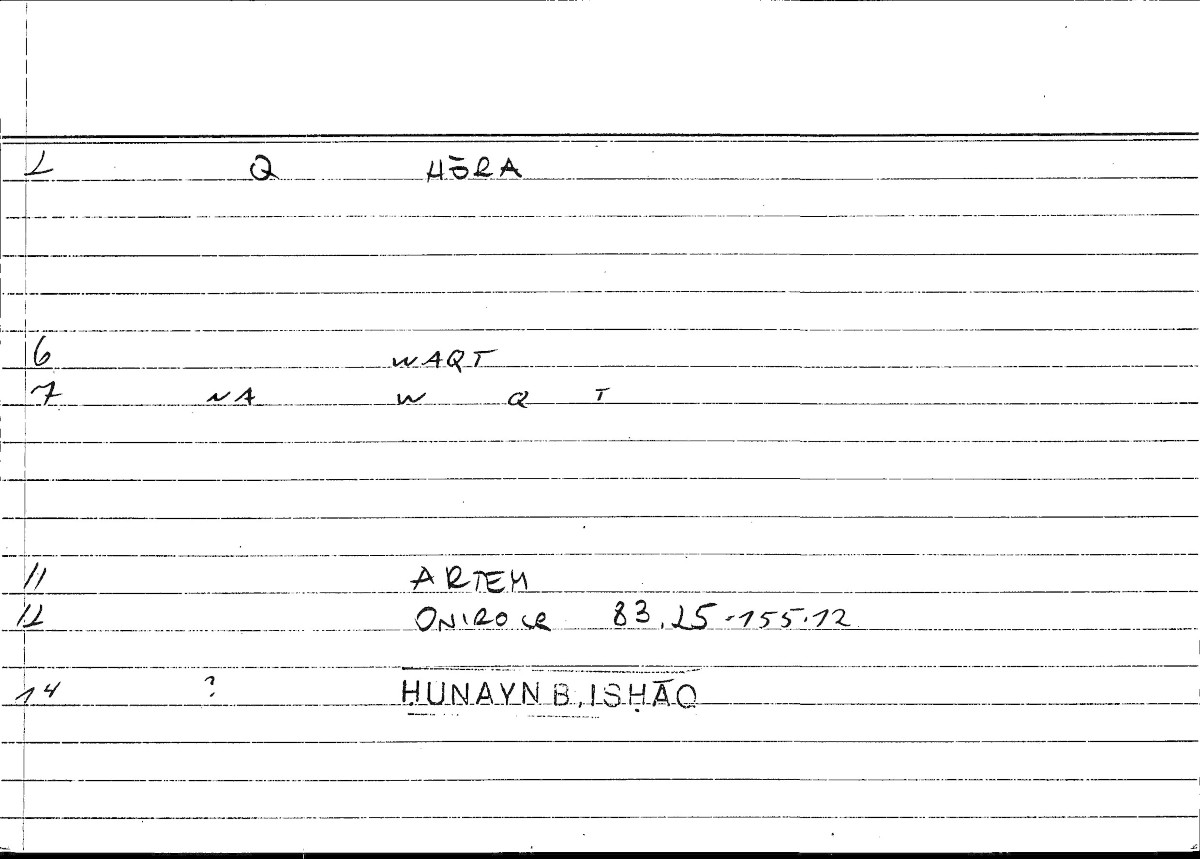 2 Q HŌRA
6 WAQT
7 NA W Q T
11 ARTEM
12 ONIROCR 83.25-155.12
14 ? ḤUNAYN B. ISḤĀQ